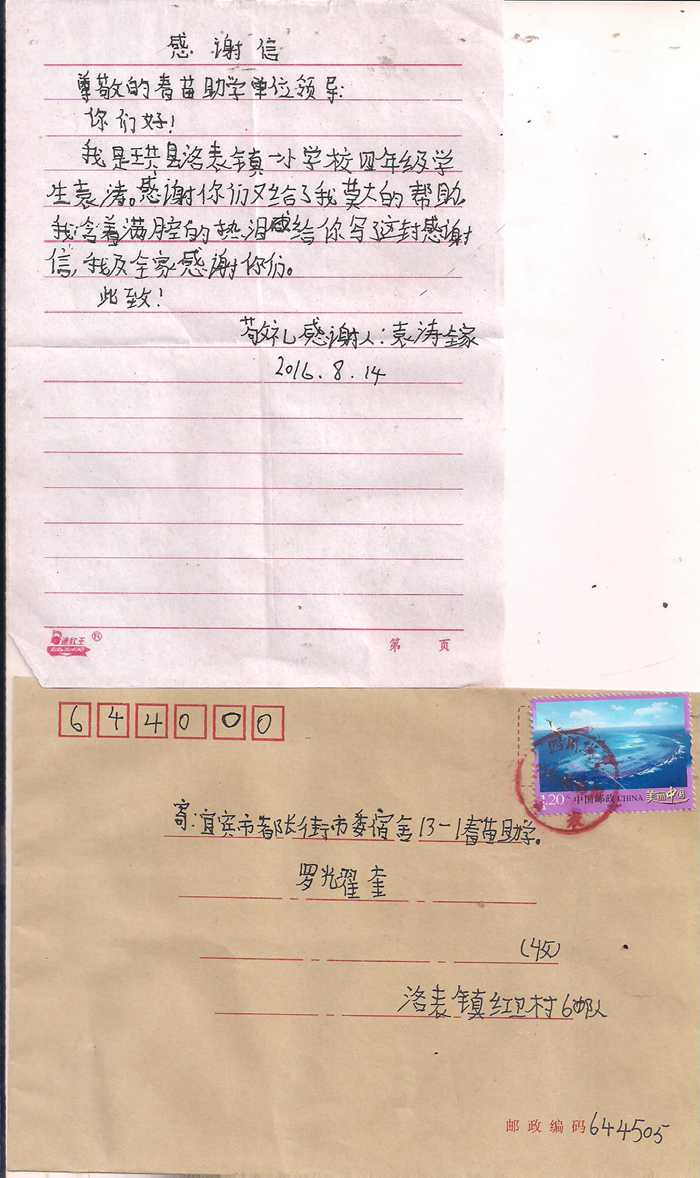 感谢信
尊敬的春苗助学单位领导:
你们好!
我是珙县洛表镇一小学校四年级学
生袁涛。感谢你们又给了我莫大的帮助.
我含着满腔的热泪给你写了这封感谢
信,我及全家感谢你们。
此致!
敬礼感谢人:袁涛全家
2016.8.14
速红王®
第 页
644000
1.20元 中国邮政 CHINA 美丽中国
寄:宜宾市都长街市委宿舍13-1春苗助学。
罗光翟奎
(收)
洛表镇红卫村6组
邮政编码644505